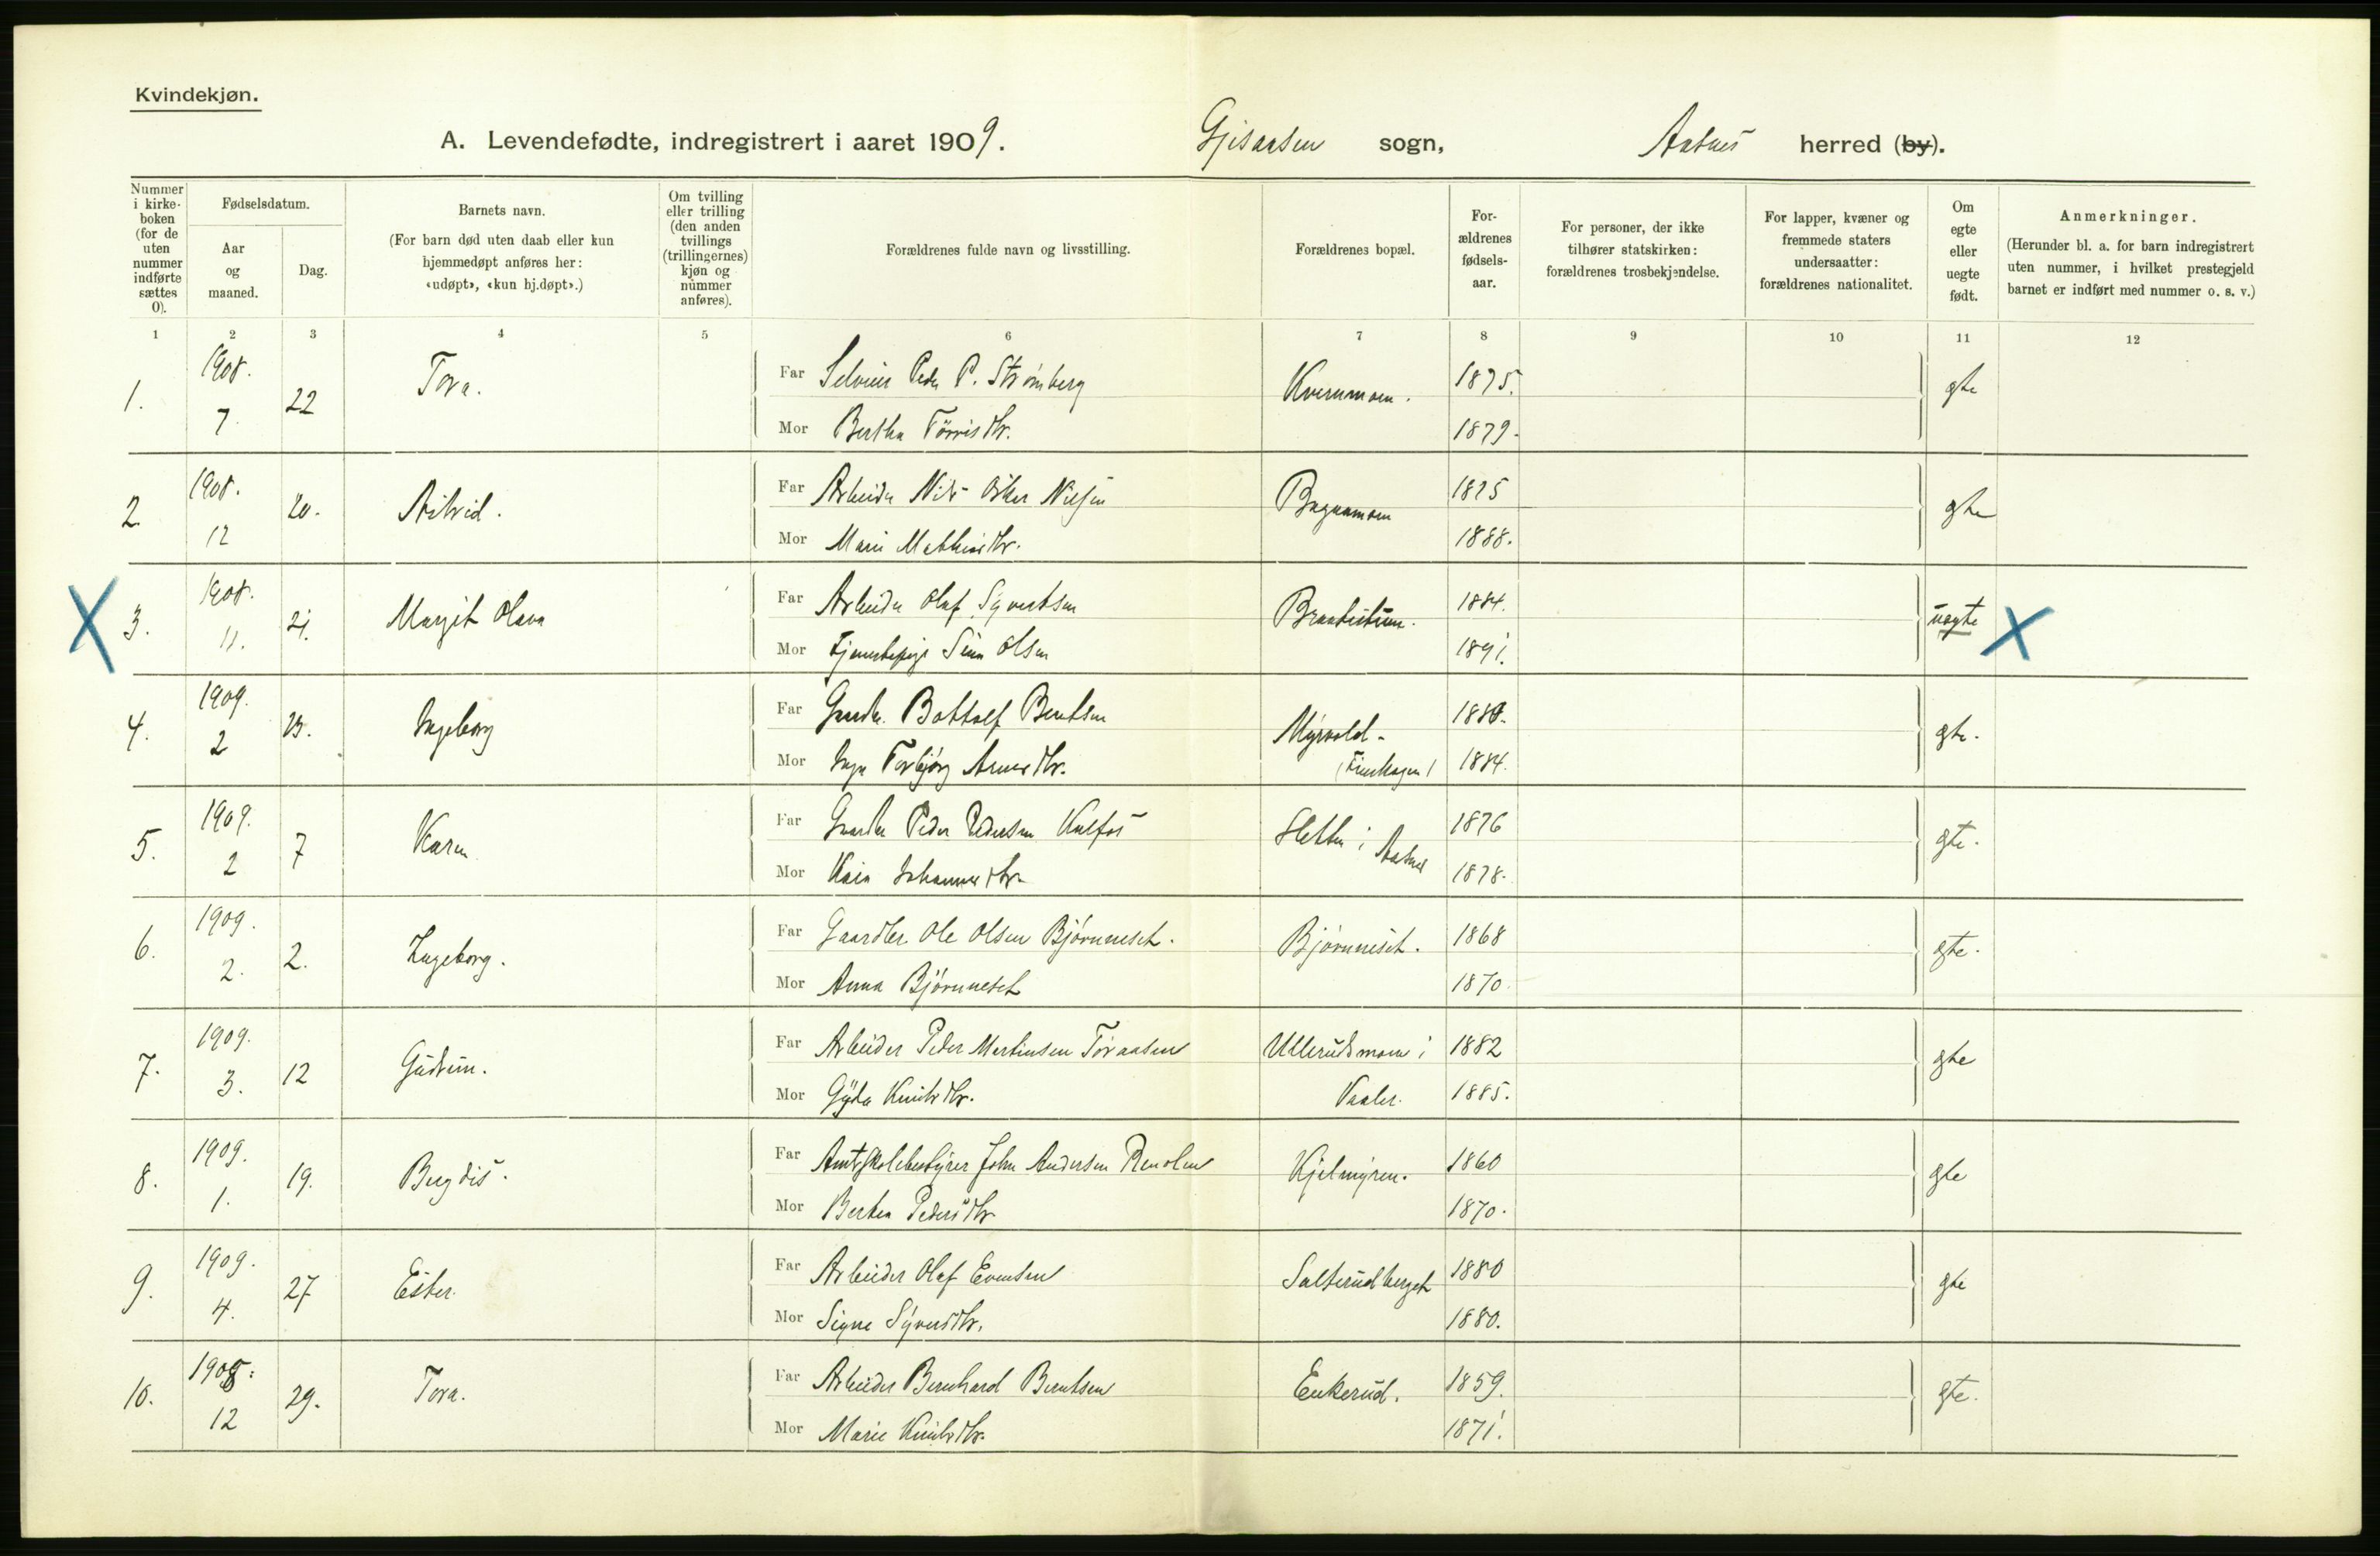 Kvindekjøn.
A. Levendefødte, indregistrert i aaret 1909. Gjesaasen sogn, Aasnes herred (by).
Nummer i kirkeboken (for de uten nummer indførte sættes 0).
Fødselsdatum.
Aar og maaned.
Dag.
Barnets navn.
(For barn død uten daab eller kun hjemmedøpt anføres her: «udøpt», «kun hj.døpt».)
Om tvilling eller trilling (den anden tvillings (trillingernes) kjøn og nummer anføres).
Forældrenes fulde navn og livsstilling.
Forældrenes bopæl.
Forældrenes fødselsaar.
For personer, der ikke tilhører statskirken: forældrenes trosbekjendelse.
For lapper, kvæner og fremmede staters undersaatter: forældrenes nationalitet.
Om egte eller uegte født.
Anmerkninger.
(Herunder bl. a. for barn indregistrert uten nummer, i hvilket prestegjeld barnet er indført med nummer o. s. v.)
1 2 3 4 5 6 7 8 9 10 11 12
1. 1908. 7. 22 Tora. Far Peder P. Strømberg Kvernmoen. 1875. egte
Mor Bertha 1879.
2. 1908. 12 20. Astrid. Far Arbeider Nils Oskar Nilsen 1875 egte
Mor Marie Mathisdtr. 1888.
X 3. 1908. 11. 21. Margit Olava Far Arbeider Olaf Syvertsen 1884. uegte X
Mor Tjenestepige Olsen 1891.
4. 1909. 2 Ingeborg Far Gaardbr. Bottolf Berntsen Myrvold - 1880. egte.
Mor Inga Torbjørg Arnesdtr. 1884.
5. 1909. 2 7 Karen Far Gaardbr Peder Pedersen Kulfos Sletten i Aasnes 1876 egte.
Mor Johannesdtr. 1878.
6. 1909. 2. 2. Ingeborg. Far Gaardbr. Ole Olsen Bjørneset. Bjørneset. 1868 egte.
Mor Anna Bjørneset 1870.
7. 1909. 3. 12 Gudrun. Far Arbeider Peder Martinsen Ullerudsmoen i 1882 egte
Mor Gyda Knutsdtr. Vaaler. 1885.
8. 1909. 1. 19. Bergdis. Far Amtsskolebestyrer John Andersen Renolen Kjelmyren. 1860 egte
Mor Bertea Pedersdtr 1870.
9. 1909. 4. 27 Ester. Far Arbeider Olaf Evensen Salterudberget 1880 egte
Mor Signe Syversdtr. 1880.
10. 1908: 12 29. Tora. Far Arbeider Bernhard Berntsen Enkerud. 1859. egte.
Mor Marie Knutsdtr. 1871.